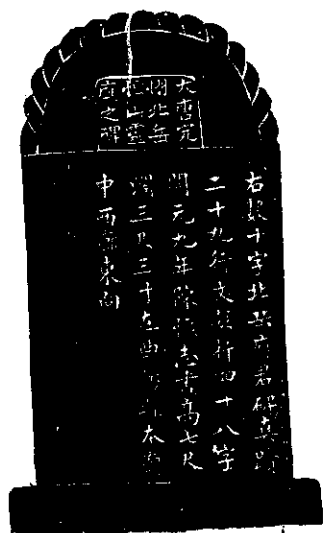 大唐定
州北
恒山靈
廟之碑
右額十字北岳府君碑真
二十九行文行四十八字
開元九年陳懷志書高七尺
濶三尺三寸在曲陽縣本廟
中西廡東向